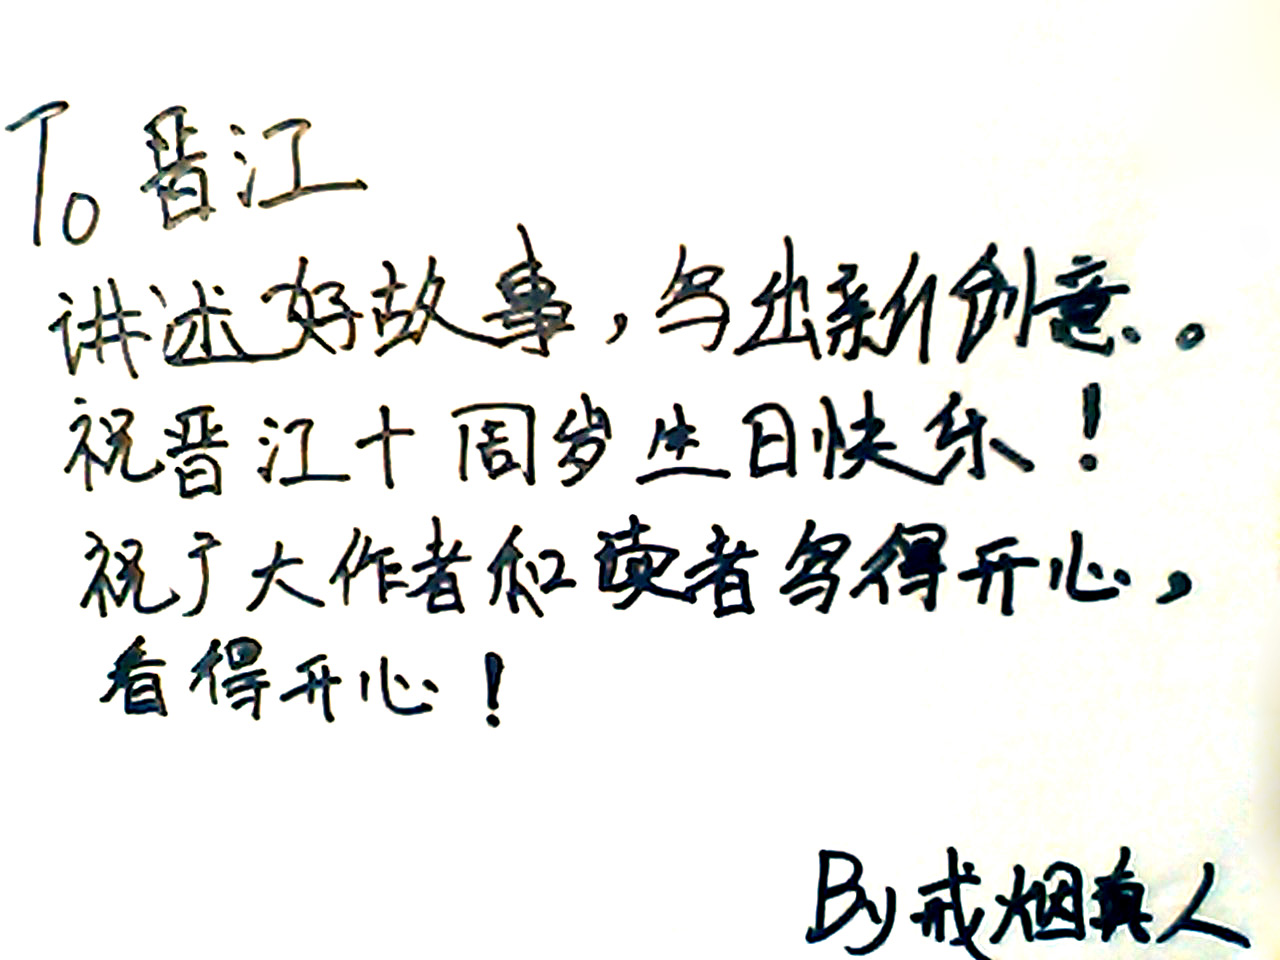 To 晋江
讲述好故事，写出新创意。
祝晋江十周岁生日快乐！
祝于大作者和读者写得开心，
看得开心！
By 戒烟真人